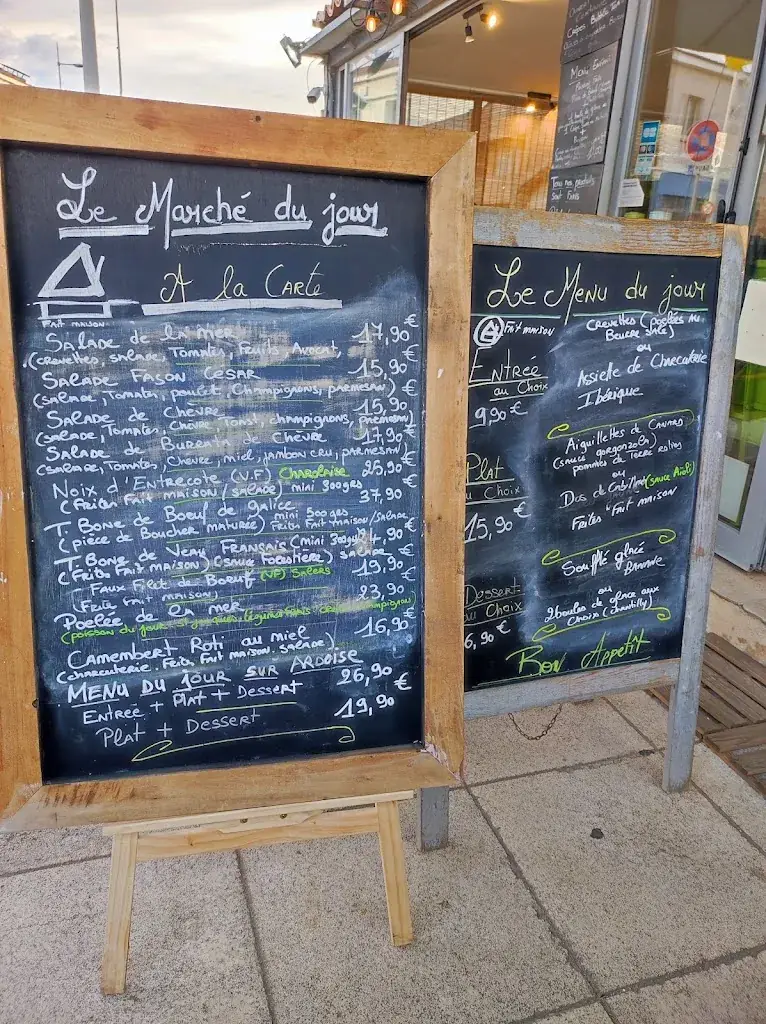 Le Marché du jour
A la Carte
FAIT MAISON
Salade de la mer 17,90 €
(crevettes, salade, Tomates, Fruits, Avocat,
Salade Façon César 15,90 €
(salade, Tomates, poulet, champignons, parmesan)
Salade de Chèvre 15,90 €
(salade, Tomates, chèvre toast, champignons, parmesan)
Salade de Burrata de Chèvre 17,90 €
(salade, Tomates, chèvre, miel, jambon cru, parmesan)
Noix d'Entrecote (V.F) Charolaise 25,90 €
(Frites Fait maison / salade) mini 300 ges
T. Bone de Boeuf de galice 37,90 €
(pièce de Boucher maturée) mini 500 ges Frites Fait maison/salade
T. Bone de Veau Français (mini 300g) 24,90 €
(Frites Fait maison) (sauce Forestière) salade
Faux Filet de Boeuf (VF) Salers 19,90 €
(Frite Fait maison)
Poelée de la mer 23,90 €
(poisson du jour, St jacques, légumes
Camembert Roti au miel 16,90 €
(charcuterie, Frites Fait maison, salade)
MENU DU JOUR SUR ARDOISE
Entrée + Plat + Dessert 26,90 €
Plat + Dessert 19,90 €
Le Menu du jour
Fait maison
Entrée
au Choix
9,90 €
Crevettes (poelées au
Beurre
ou
Assiette de Charcuterie
Ibérique
Plat
au Choix
15,90 €
Aiguillettes de Canard
(sauce gorgonzola)
pommes de terre
ou
Dos de Cabillaud (sauce Aïoli)
Frites "Fait maison
Dessert
au Choix
6,90 €
Soufflé glacé
ou
2 boules de glace aux
choix (chantilly)
Bon Appetit
Menu Enfant